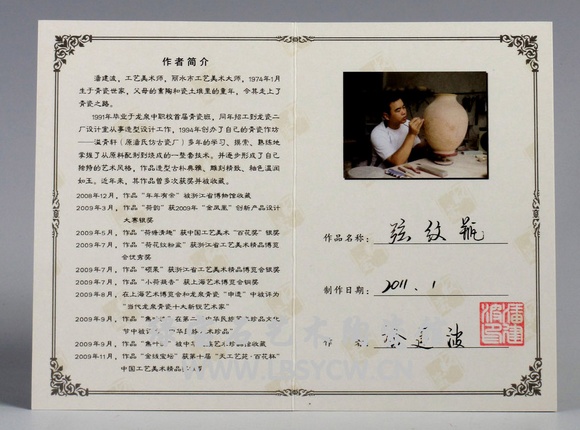 作者简介
潘建波，工艺美术师，丽水市工艺美术大师，1974年1月
生于青瓷世家，父母的熏陶和瓷土堆里的童年，令其走上了
青瓷之路。
1991年毕业于龙泉中职校首届青瓷班，同年招工到龙瓷二
厂设计室从事造型设计工作，1994年创办了自己的青瓷作坊
（原潘氏仿古瓷厂）多年的学习、摸索，熟练地
掌握了从原料配制到烧成的一整套技术，并逐步形成了自己
独特的艺术风格，作品造型古朴典雅，雕刻精致，釉色温润
如玉。近年来，其作品曾多次获奖并被收藏。
2008年12月，作品“年年有余”被浙江省博物馆收藏
2009年3月，作品“荷韵”获2009年“金凤凰”创新产品设计
大赛银奖
2009年5月，作品“荷塘清趣”获中国工艺美术“百花奖”银奖
2009年7月，作品“荷花纹粉盒”获浙江省工艺美术精品博览
会优秀奖
2009年7月，作品“硕果”获浙江省工艺美术精品博览会银奖
2009年7月，作品“小荷”获上海艺术博览会铜奖
2009年8月，在上海艺术博览会和龙泉青瓷“申遗”中被评为
“当代龙泉青瓷十大新锐艺术家”
2009年9月，作品“集中”在第二
节中被
2009年9月，作品“集中”被中
2009年11月，作品“金钱宝坛”获第十届“天工艺苑·百花杯”
中国工艺美术精品
作品名称：弦纹瓶
制作日期：2011.1
潘建波
WWW.LBSYCW.CN